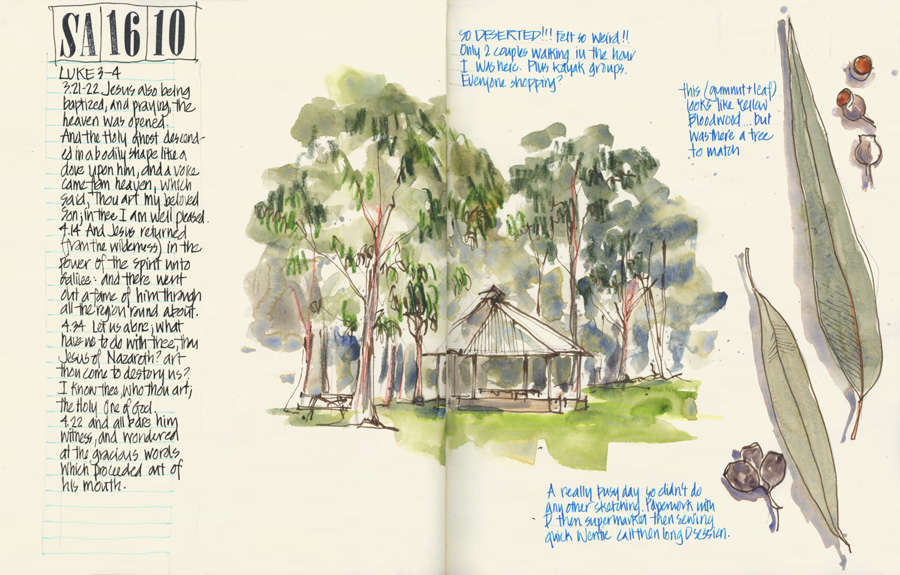 SA 16 10
LUKE 3-4
3:21-22 Jesus also being
baptized, and praying, the
heaven was opened.
And the Holy Ghost descend-
ed in a bodily shape like a
dove upon him, and a voice
came from heaven, which
said, Thou art my beloved
Son; in thee I am well pleased.
4.14 And Jesus returned
(from the wilderness) in the
power of the spirit unto
Galilee: and there went
out a fame of him through
all the region round about.
4.34 Let us alone; what
have we to do with thee, thou
Jesus of Nazareth? art
thou come to destory us?
I know thee, who thou art;
the Holy One of God.
4.22 and all bare him
witness, and wondered
at the gracious words
which proceeded out of
his mouth.
SO DESERTED!!! Felt so weird!!
Only 2 couples walking in the hour
I was here. Plus kayak groups.
Everyone shopping?
this (gumnut + leaf)
looks like Yellow
Bloodwood... but
was there a tree
to match
A really busy day so didn't do
any other sketching. Paperwork with
D then supermarket then sewing
quick Wentic call then long D session.